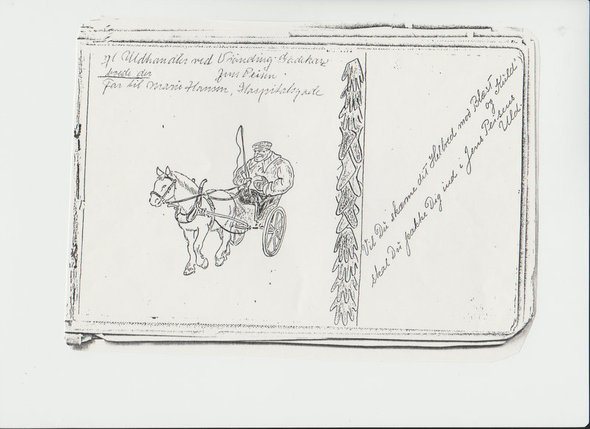 gl Uldhandler ved Vranding Gadekær
boede der Jens Peisen
Far til Marie Hansen, Hospitalsgade
Vil Du skaane dit Helbred mod Blæst
og Kuld
skal Du pakke Dig ind i Jens Peisens
Uld.